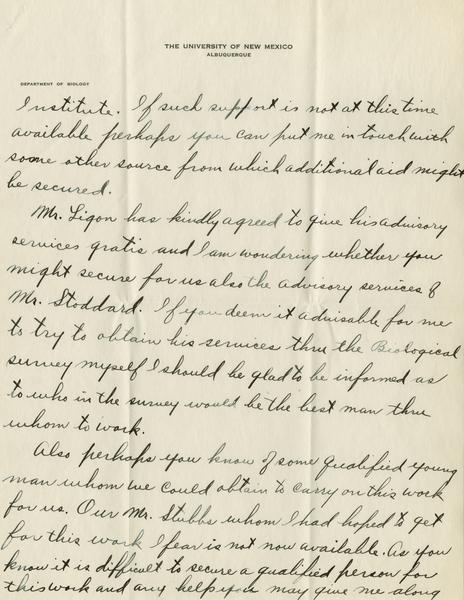 THE UNIVERSITY OF NEW MEXICO
ALBUQUERQUE
DEPARTMENT OF BIOLOGY
Institute. If such support is not at this time
available perhaps you can put me in touch with
some other source from which additional aid might
be secured.
Mr. Ligon has kindly agreed to give his advisory
services gratis and I am wondering whether you
might secure for us also the advisory services of
Mr. Stoddard. If you deem it advisable for me
to try to obtain his services thru the Biological
survey myself I should be glad to be informed as
to who in the survey would be the best man thru
whom to work.
Also perhaps you know of some qualified young
man whom we could obtain to carry on this work
for us. Our Mr. Stubbs whom I had hoped to get
for this work I fear is not now available. As you
know it is difficult to secure a qualified person for
this work and any help you may give me along